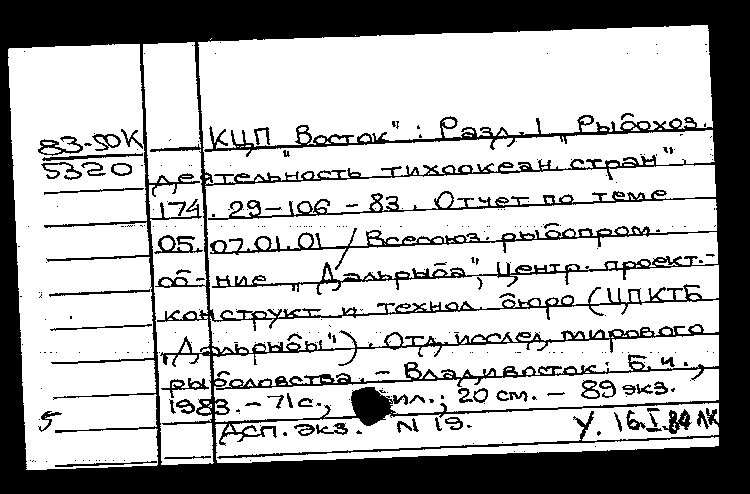 83-50К
5320
КЦП "Восток" : Разд. 1 „Рыбохоз.
деятельность тихоокеан. стран".
174. 29-106 - 83. Отчет по теме
05.07.01.01 / Всесоюз. рыбопром.
об-ние „Дальрыба", Центр. проект.-
конструкт и технол. бюро (ЦПКТБ
„Дальрыбы"). Отд. исслед. мирового
рыболовства. - Владивосток: Б.и.,
1983. - 71 с., ил.; 20 см. - 89 экз.
5
Асп. экз. N 19.
У. 16.I.84 ЛК